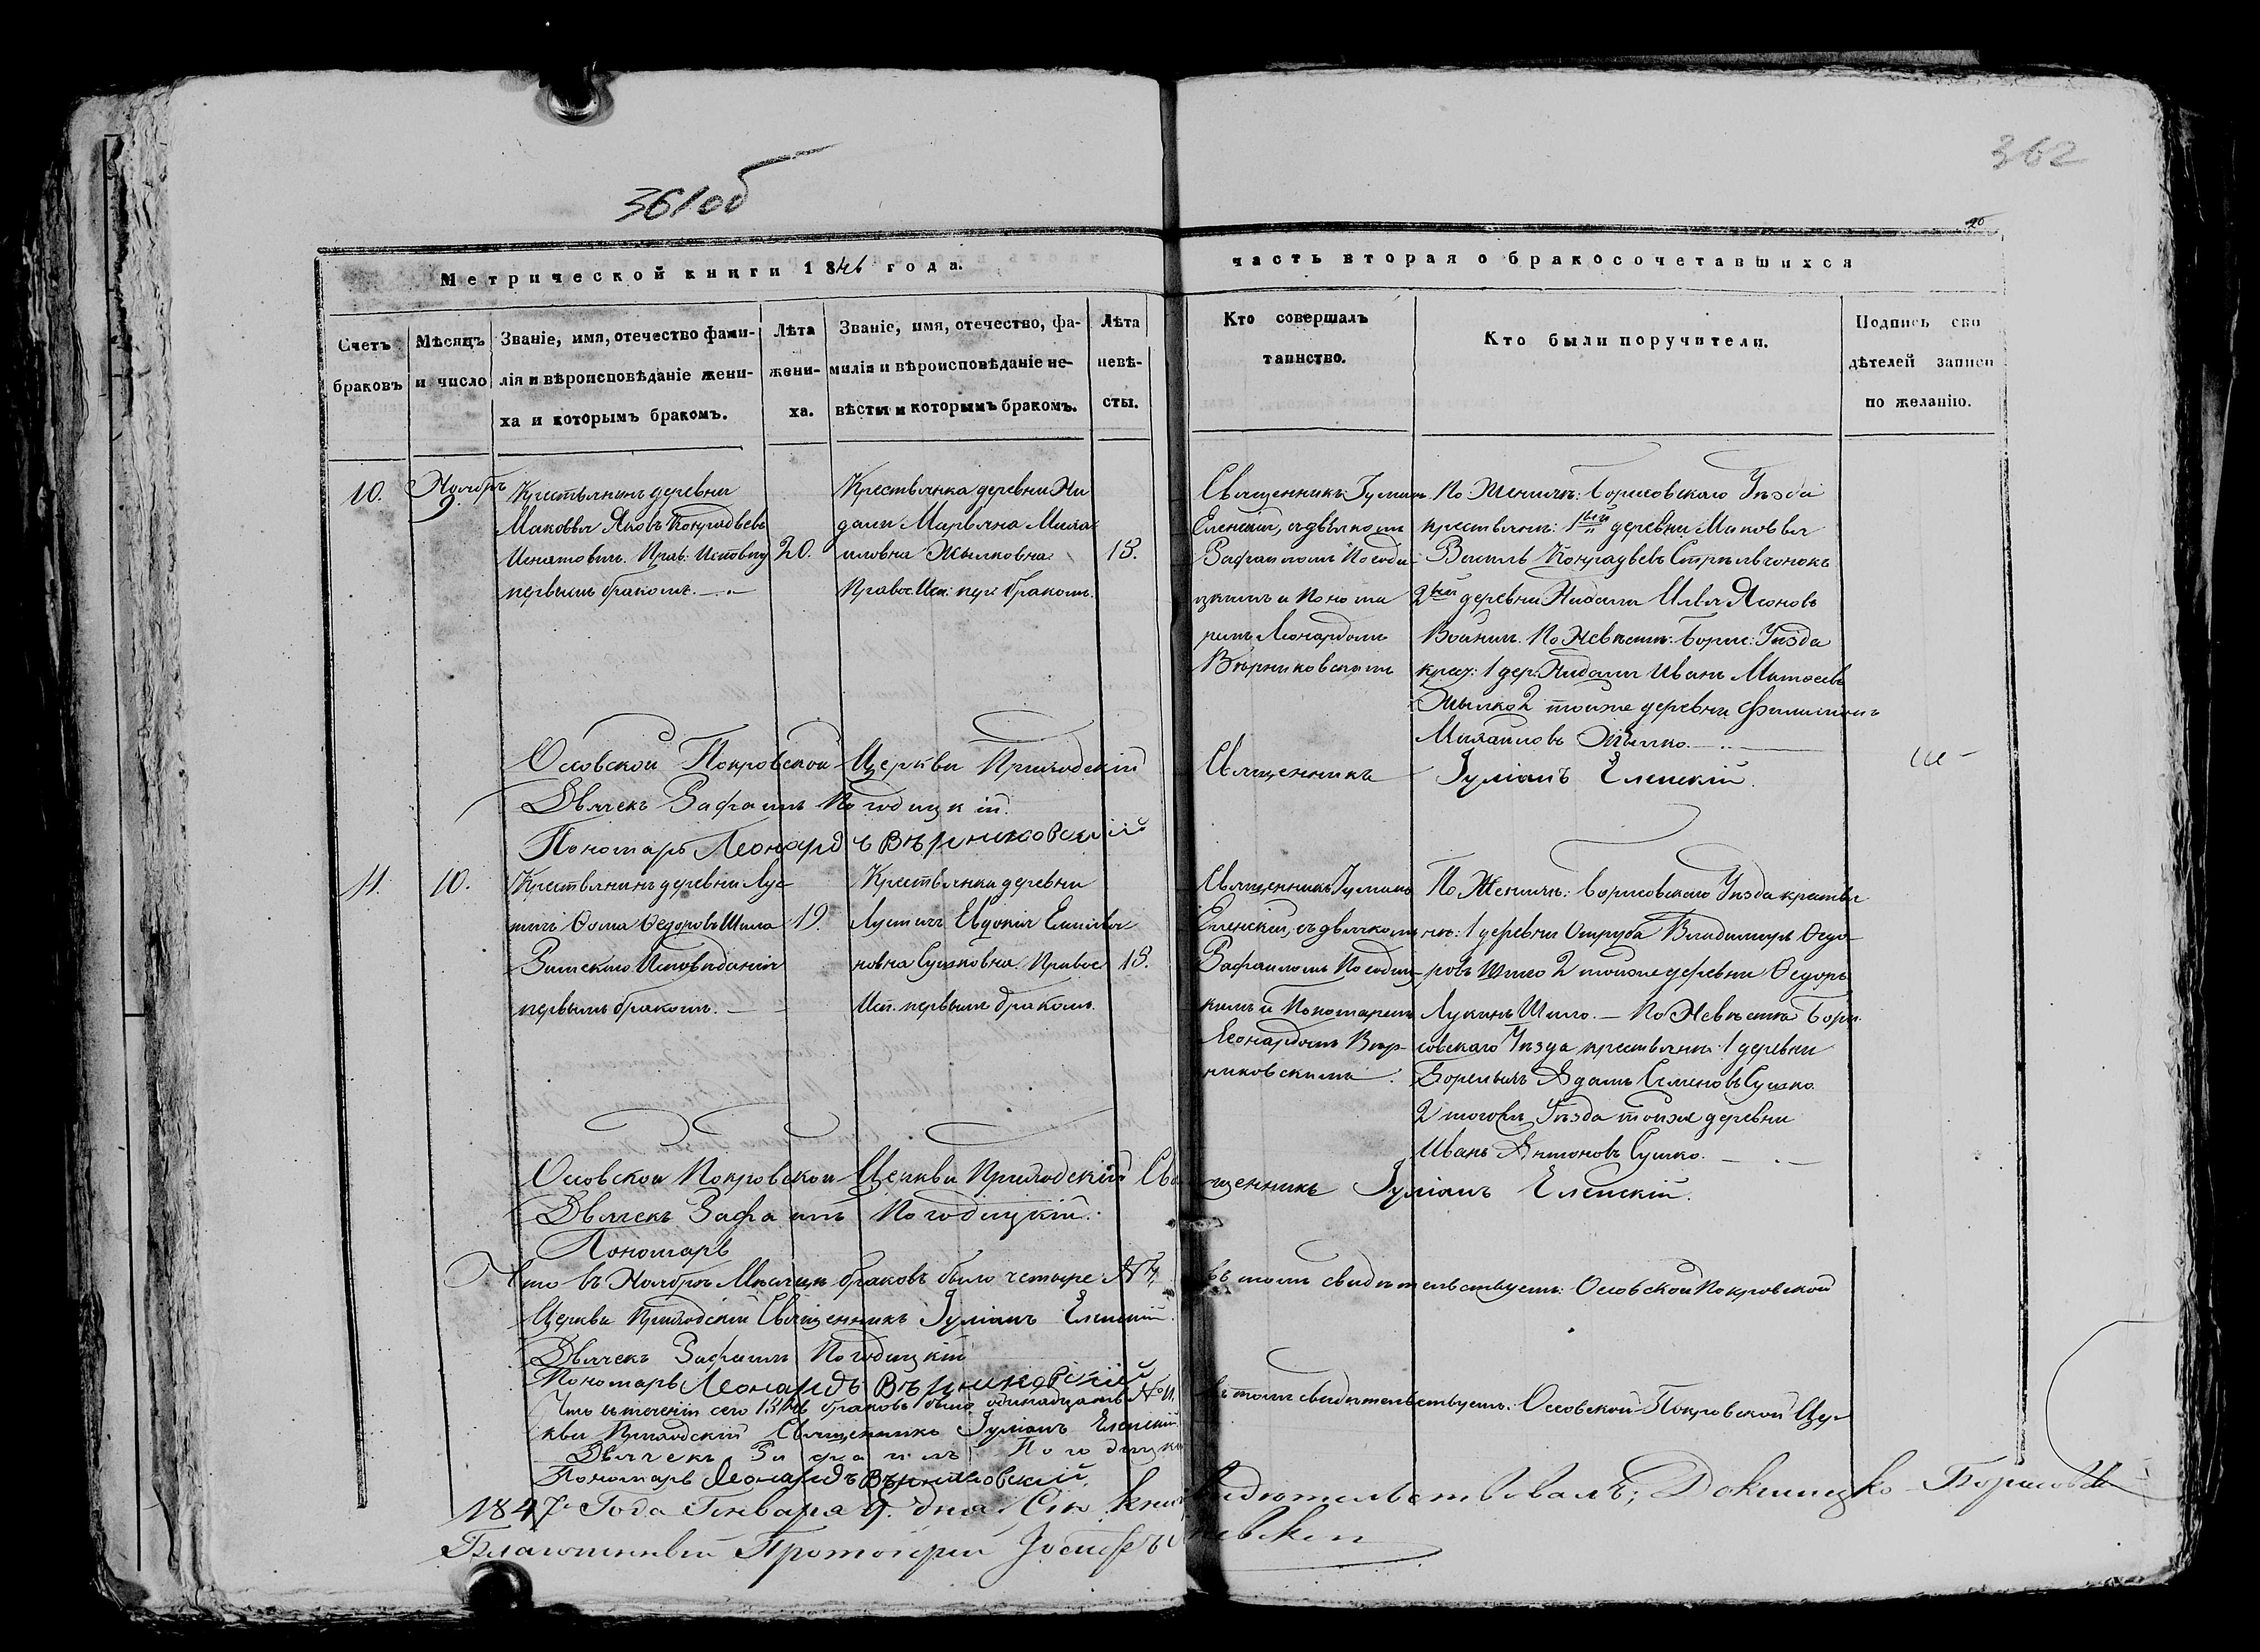 361об
362
Метрической книги 1846 года.
часть вторая о бракосочетавшихся
Счетъ браковъ
Мѣсяцъ и число
Званіе, имя, отечество фами-
лія и вѣроисповѣданіе жени-
ха и которымъ бракомъ.
Лѣта
жени-
ха.
Званіе, имя, отечество, фа-
милія и вѣроисповѣданіе не-
вѣсты и которымъ бракомъ.
Лѣта
невѣ-
сты.
Кто совершалъ
таинство.
Кто были поручители.
Подпись сви
дѣтелей записи
по желанію.
10.
Ноябрь
9.
Крестьянинъ деревни
Маковья Яковъ Кондратьевъ
Игнатовичъ. Прав: Исповед
первымъ бракомъ.
20.
Крестьянка деревни Ни
дали Марьяна Михаи
ловна Жылковна
Правос Исп: пер: бракомъ.
18.
Священникъ Іуліанъ
Еленскій, съ дьячкомъ
Рафаиломъ Погоди-
цкимъ и Понома
ремъ Леонардомъ
Вѣрниковскимъ
По Женихѣ: Борисовскаго Уѣзда
крестьянѣ: 1ый деревни Маковья
Василь Кондратьевъ Стрѣльчонокъ
2ый деревни Нидали Илья Леоновъ
По Невѣстѣ: Борис: Уѣзда
крест: 1 дер: Нидали Иванъ Матвеевъ
Жылко 2 тойже деревни
Михаиловъ Жылко.
Осовской Покровской Церкви Приходскій
Священникъ Іуліанъ Еленскій.
Дьячекъ Рафаилъ Погодицкій.
Пономарь Леонардъ Вѣрниковскій
11.
10.
Крестьянинъ деревни Лус
тичъ Ѳома Ѳедоровъ Шила
Римскаго Исповѣданія
первымъ бракомъ.
19.
Крестьянка деревни
Лустичъ Евдокія
новна Сушковна. Правос
Исп. первымъ бракомъ.
18.
Священникъ Іуліанъ
Еленскій, съ дьячкомъ
Рафаиломъ Погодиц-
кимъ и Пономаремъ
Леонардомъ Вѣр-
никовскимъ.
По Женихѣ: Борисовскаго Уѣзда крестья
нѣ: 1 деревни Отруба Владимиръ Ѳедо-
ровъ Шило 2 тойже деревни Ѳедоръ
Лукинъ Шило. — По Невѣстѣ Бори
совскаго Уѣзда крестьянѣ: 1 деревни
Адамъ Семеновъ Сушко
2 тогожъ Уѣзда тойже деревни
Иванъ Антоновъ Сушко.
Осовской Покровской Церкви Приходскій Священникъ Іуліанъ Еленскій.
Дьячекъ Рафаилъ Погодицкій.
Пономарь
Что въ Ноябрѣ Мѣсяцѣ браковъ было четыре № 4 въ томъ свидѣтельствуемъ: Осовской Покровской
Церкви Приходскій Священникъ Іуліанъ Еленскій.
Дьячекъ Рафаилъ Погодицкій
Пономарь Леонардъ Вѣрниковскій
Что въ теченіи сего 1846 браковъ было одинадцать № 11. въ томъ свидѣтельствуемъ: Осовской Покровской Цер-
кви Приходскій Священникъ Іуліанъ Еленскій
Дьячекъ Рафаилъ Погодицкій
Пономарь Леонардъ Вѣрниковскій.
1847 Года Генваря 9. дня Сію книгу свидѣтельствовалъ; Докшицко-Борисовскій
Благочинный Протоіерей Іосифъ